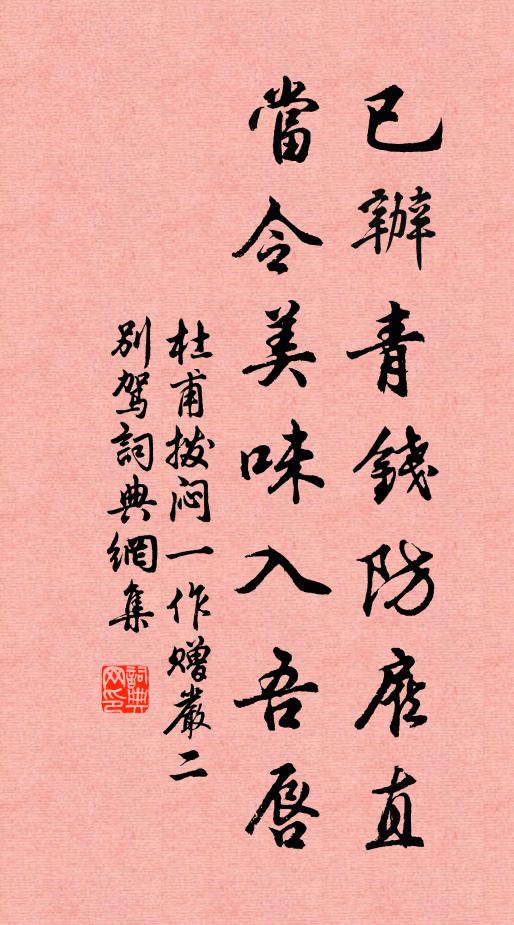 已辦青錢防雇直
當令美味入吾唇
杜甫撥悶一作贈嚴二
別駕詞典網集
詞典网印